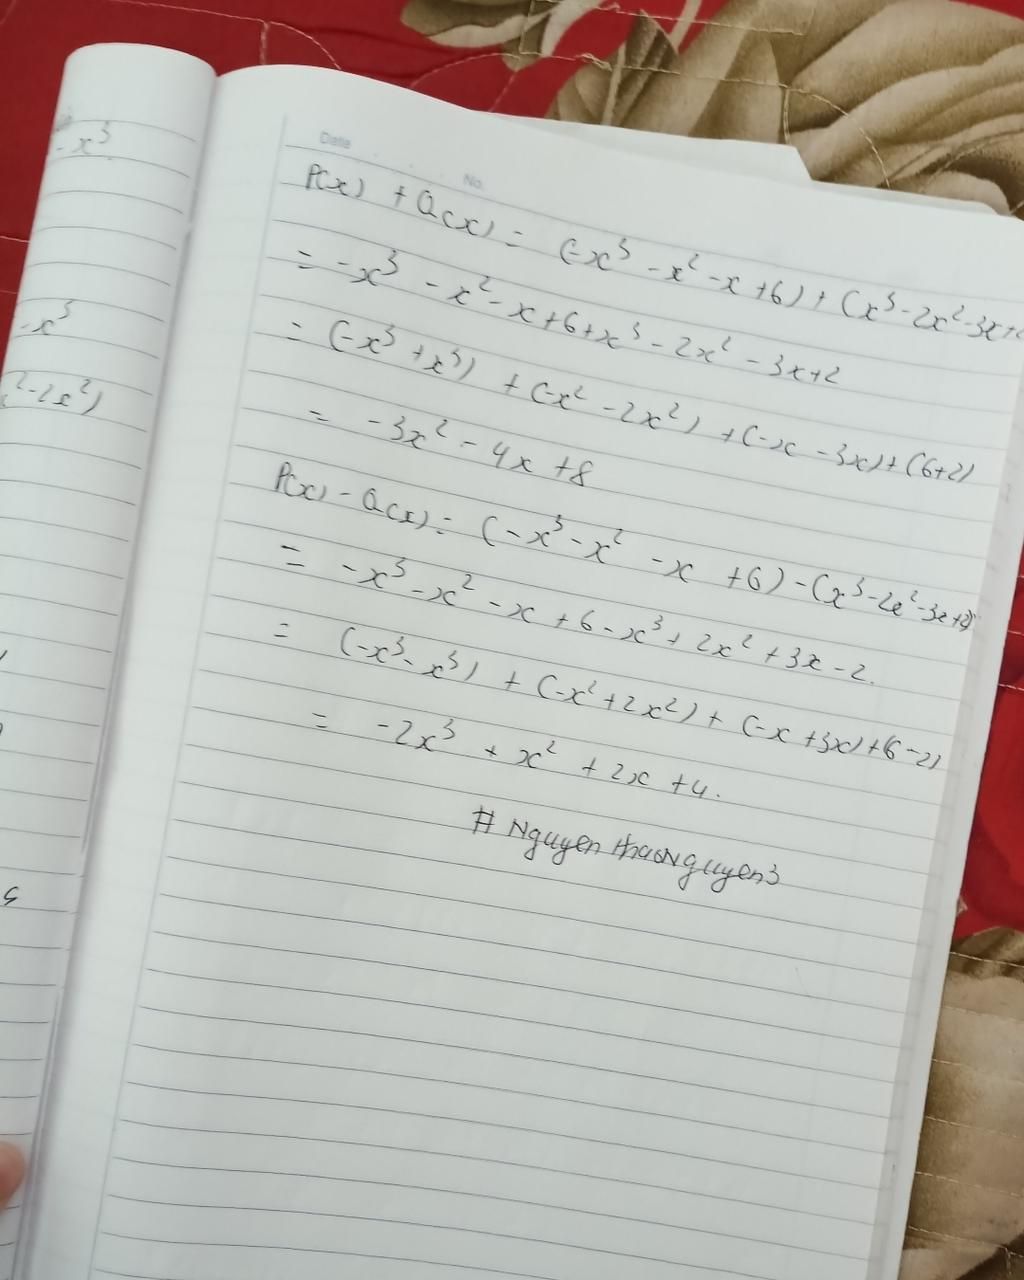 - x³
-x³
²-2x²)
Date
No.
P(x) + Q(x) = (-x³ - x² - x + 6) + (x³ - 2x² - 3x +
= -x³ - x² - x + 6 + x³ - 2x² - 3x + 2
= (-x³ + x³) + (-x² - 2x²) + (-x - 3x) + (6+2)
= -3x² - 4x + 8
P(x) - Q(x) = (-x³ - x² - x + 6) - (x³ - 2x² - 3x + 2)
= -x³ - x² - x + 6 - x³ + 2x² + 3x - 2.
= (-x³ - x³) + (-x² + 2x²) + (-x + 3x) + (6 - 2)
= -2x³ + x² + 2x + 4.
# Nguyen thaoNguyen3